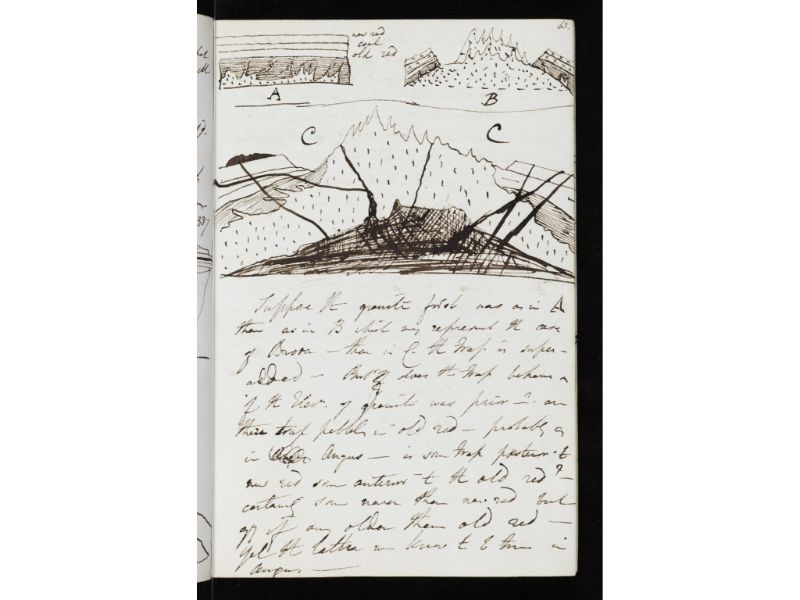 63.
new red
coal
old red
A
B
C
C
337
Suppose the granite first was as in A
then as in B which may represent the case
of Brora — then in C. the trap is super-
added — But does the trap behave
if the Elev. of granite was prior — are
there trap pebbles in old red — probably
in Angus — is some trap posterior to
new red some anterior to the old red? —
certainly some newer than new red but
if any older than old red —
Yet the latter we know to be true in
Angus —